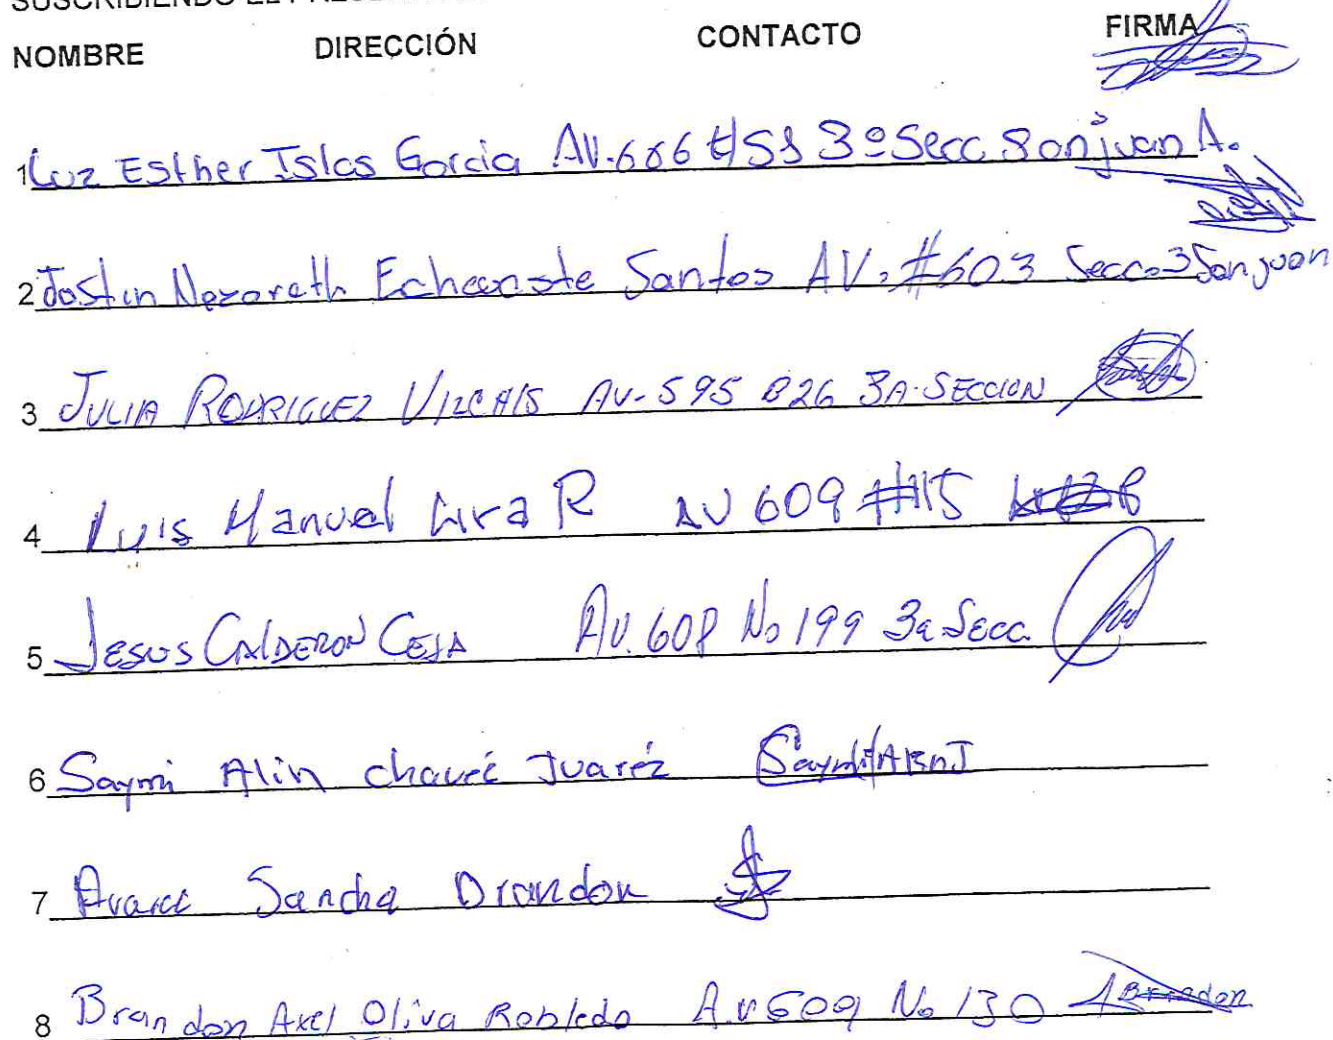 NOMBRE DIRECCIÓN CONTACTO FIRMA
1 Luz Esther Islas Garcia AV. 606 #58 3º Secc San juan A.
2 Jostin Nazareth Santos AV. #603 Secc. 3 San juan
3 JULIA RODRIGUEZ AV. 595 B26 3A. SECCION
4 Luis Manuel Lira R AV 609 #115
5 JESUS CALDERON CEJA AV. 608 No 199 3a Secc.
6 Saymi Alin chavéz Juaréz
7 Sancha
8 Brandon Axel Oliva Robledo A.v 609 No 130 Brandon